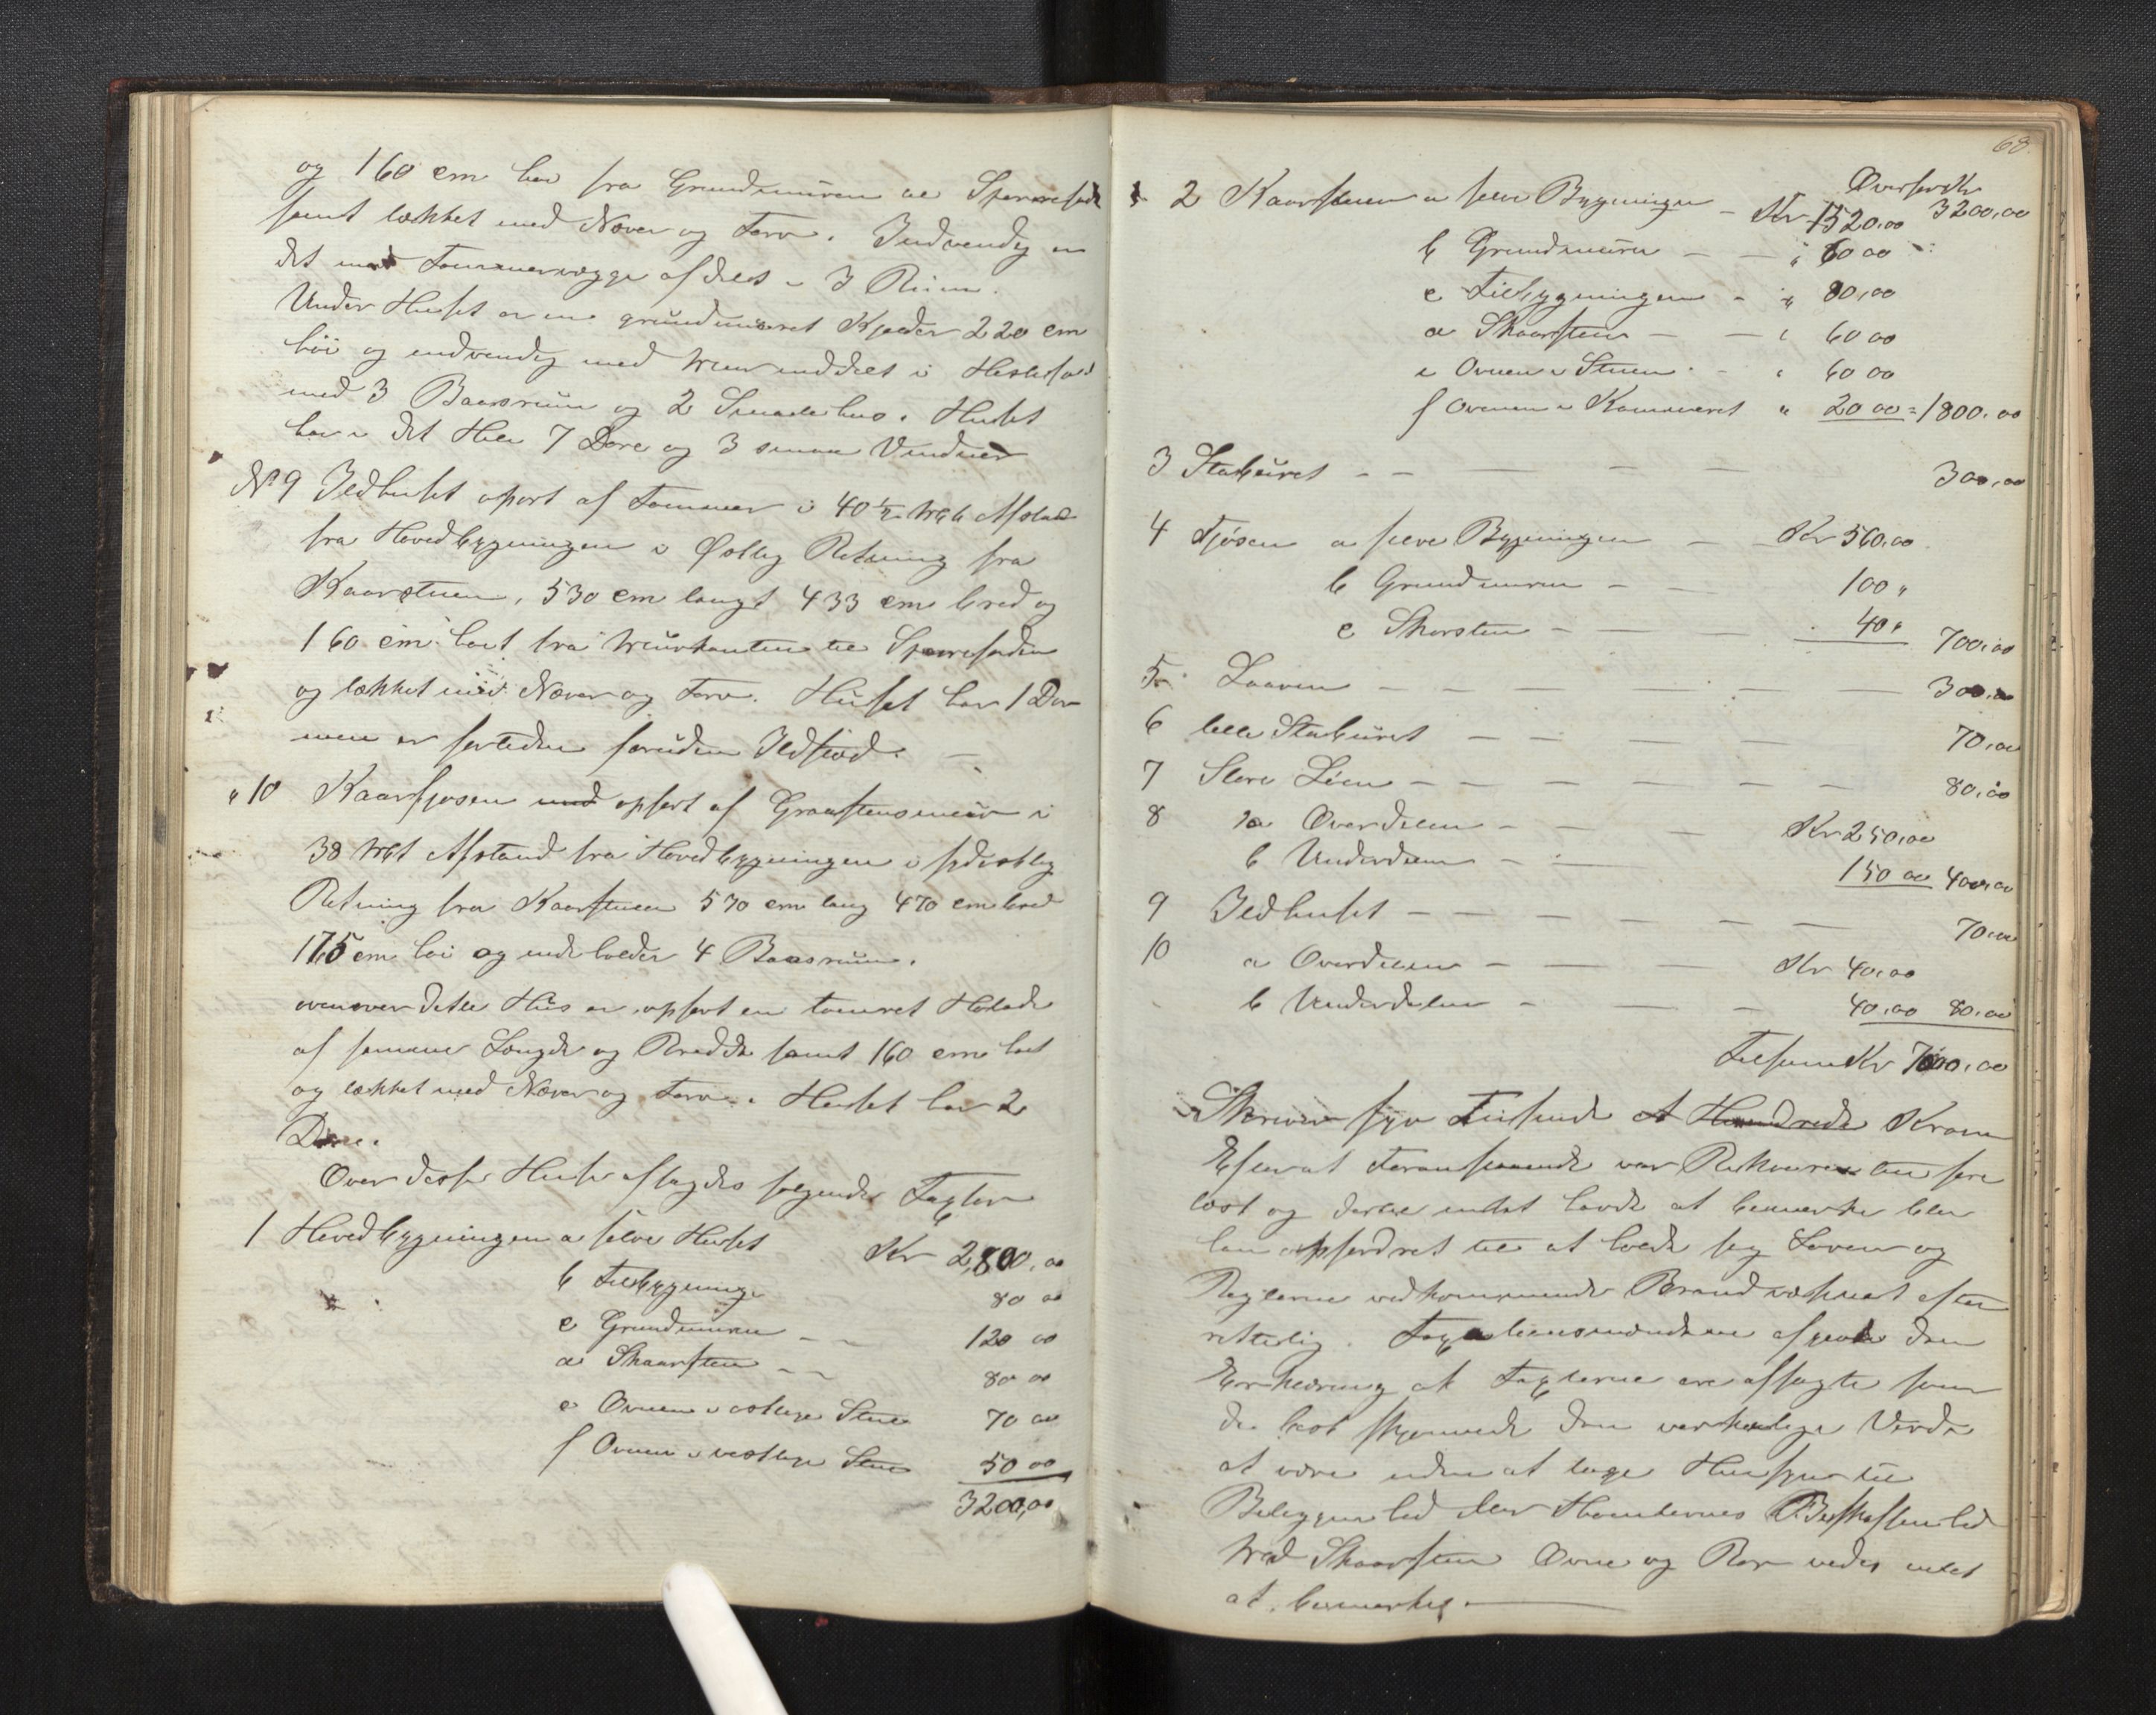 og 160 cm høi fra Grundmuren til Sperrefode
samt tækket med Næver og Torv. Indvendig er
det med Tømmervægge afdelt i 3 Rum.
Under Huset er en grundmuret Kjelder 220 cm
høi og indvendig med Mur inddelt i Hestestald
med 3 Baasrum og 2 Smalehus. Huset
har i det Hele 7 Døre og 3 smaa Vinduer
No 9 Ildhuset opført af Tømmer i 40½ Mtr Afstand
fra Hovedbygningen i Østlig Retning fra
Kaarstuen, 530 cm langt 433 cm bred og
160 cm høit fra Murkanten til Sperrefoden
og tækket med Næver og Torv. Huset har 1 Dør
men er fortiden foruden Ildsted. —
" 10 Kaarfjøsen med opført af Graastensmur i
38 Mtr Afstand fra Hovedbygningen i sydostlig
Retning fra Kaarstuen 570 cm lang 470 cm bred
175 cm høi og indeholder 4 Baasrum.
ovenover dette Hus er opført en tømret Hølade
af samme Længde og Bredde samt 160 cm høit
og tækket med Næver og Torv. Huset har 2
Døre.
Over disse Huse afsagdes følgende Taxter
1 Hovedbygningen a selve Huset Kr 2,800,00
b Tilbygning 80 00
c Grundmuren — — 120 00
d Skaarsten — — 80 00
e Ovnen i østlige Stue 70 00
f Ovnen i vestlige Stue 50 00
3200,00
68.
Overført Kr
2 Kaarstuen a selve Bygningen — Kr 1520.00 3200,00
b Grundmuren — — " 60 00
c Tilbygningen — " 80,00
d Skaarsten — — " 60 00
e Ovnen i Stuen — " 60 00
f Ovnen i Kammeret " 20 00 = 1800.00
3 Staburet — — — — 300,00
4 Fjøsen a selve Bygningen — Kr 560,00
b Grundmuren — — 100 "
c Skorsten — — — 40 " 700,00
5 Laaven — — — — — — 300,00
6 lille Staburet — — — — — 70,00
7 Store Løen — — — — — — 80,00
8 a Overdelen — — — Kr 250,00
b Underdelen — — 150 00 400,00
9 Ildhuset — — — — — — 70,00
10 a Overdelen — — — Kr 40,00
b Underdelen — — — 40,00 80,00
Tilsam Kr 7000,00
Skriver syv Tusinde et Hundrede Kroner
Efterat Foranstaaende var Rekvirenten fore
læst og dertil intet havde at bemærke blev
han opfordret til at holde sig Loven og
Reglerne vedkommende Brandvæsenet efter
rettelig. Taxationsmændene afgave den
Erklæring at Taxterne ere afsagte som
de bæst skjønnede den verkelige Værdi
at være uden at tage Hensyn til
Beliggenhed eller Tomternes Beskaffenhed
Med Skaarsten Ovne og Rør vides intet
at bemærke —